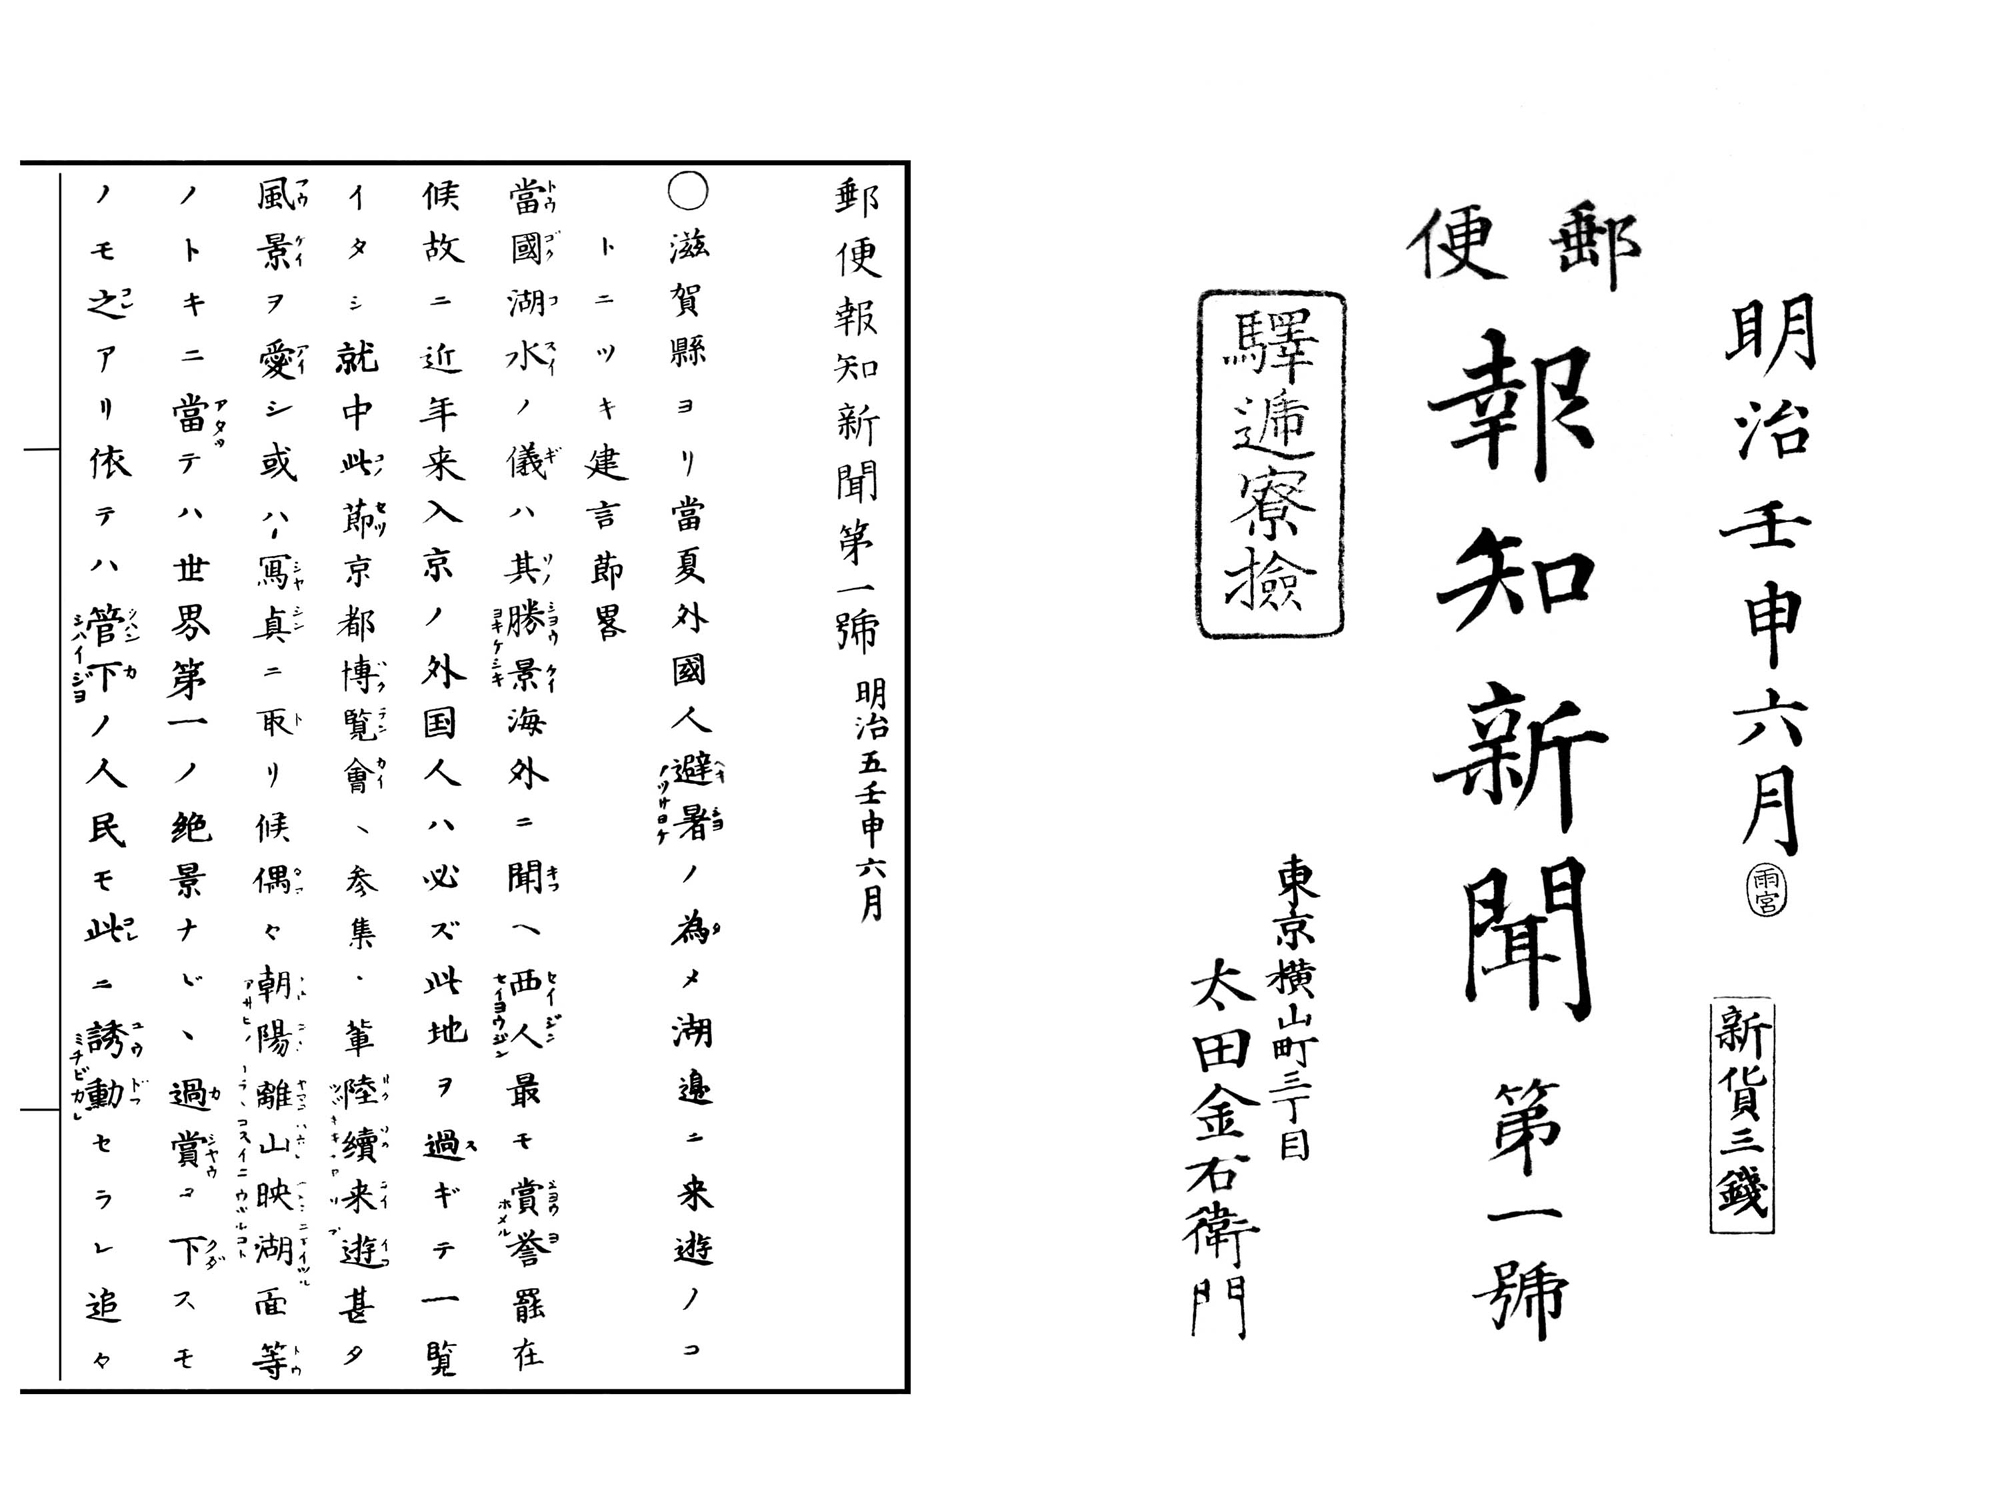 明治壬申六月
雨宮
新貨三錢
郵便
報知新聞 第一號
驛遞寮撿
東京横山町三丁目
太田金右衛門
郵便報知新聞第一號 明治五壬申六月
◯滋賀縣ヨリ當夏外國人避暑ノ為メ湖邉ニ来遊ノコ
トニツキ建言節畧
當國湖水ノ儀ハ其勝景海外ニ聞ヘ西人最モ賞誉罷在
候故ニ近年来入京ノ外国人ハ必ズ此地ヲ過ギテ一覧
イタシ就中此節京都博覧會、参集、輩陸續来遊甚タ
風景ヲ愛シ或ハ寫真ニ取リ候偶々朝陽離山映湖面等
ノトキニ當テハ世界第一ノ絶景ナド、過賞ヲ下スモ
ノモ之アリ依テハ管下ノ人民モ此ニ誘動セラレ追々